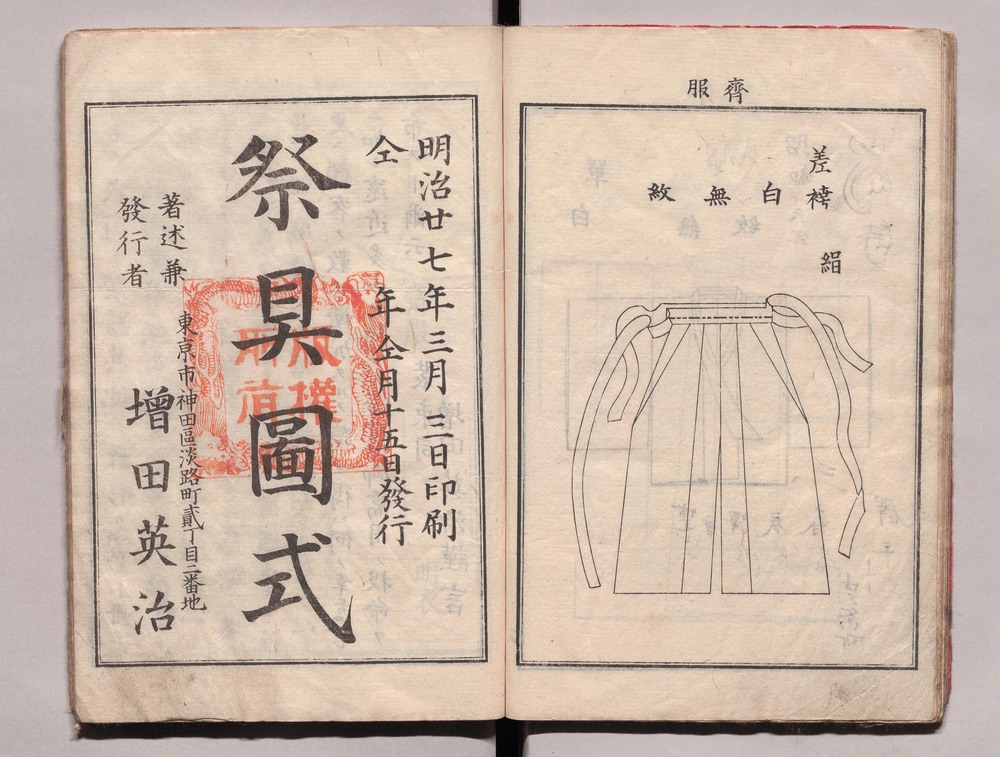 齊服
差袴
白無紋
絹
明治廿七年三月三日印刷
仝年仝月十五日發行
祭具圖式
版權
所有
著述兼
發行者
東京市神田區淡路町貳丁目二番地
增田英治